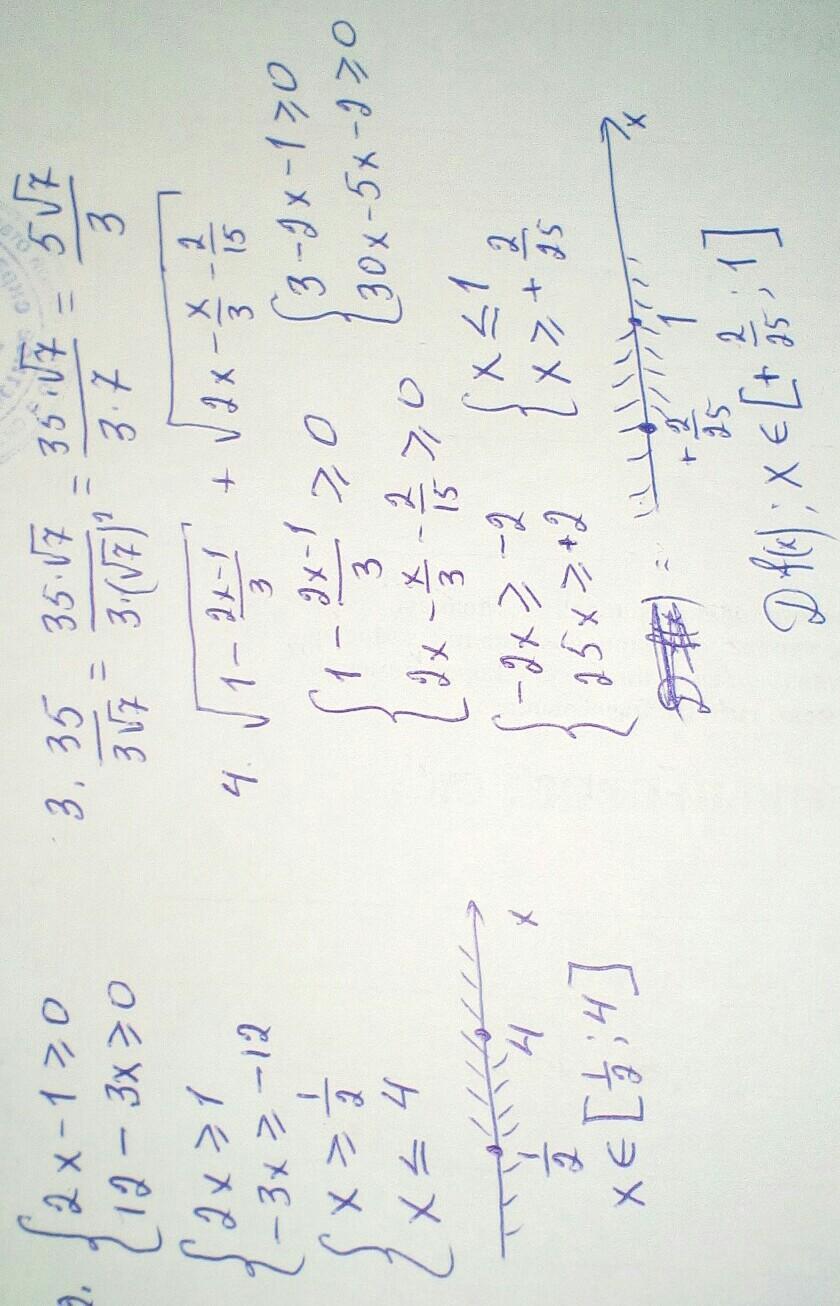 2. { 2x - 1 ≥ 0
{ 12 - 3x ≥ 0
{ 2x ≥ 1
{ -3x ≥ -12
{ x ≥ 1/2
{ x ≤ 4
1/2 4 x
x ∈ [1/2 ; 4]
3. 35/(3√7) = (35·√7)/(3·(√7)²) = (35·√7)/(3·7) = (5√7)/3
4. √(1 - (2x-1)/3) + √(2x - x/3 - 2/15)
{ 1 - (2x-1)/3 ≥ 0 { 3 - 2x - 1 ≥ 0
{ 2x - x/3 - 2/15 ≥ 0 { 30x - 5x - 2 ≥ 0
{ -2x ≥ -2 { x ≤ 1
{ 25x ≥ +2 { x ≥ + 2/25
) =
+ 2/25 1 x
D f(x); x ∈ [+ 2/25 ; 1]